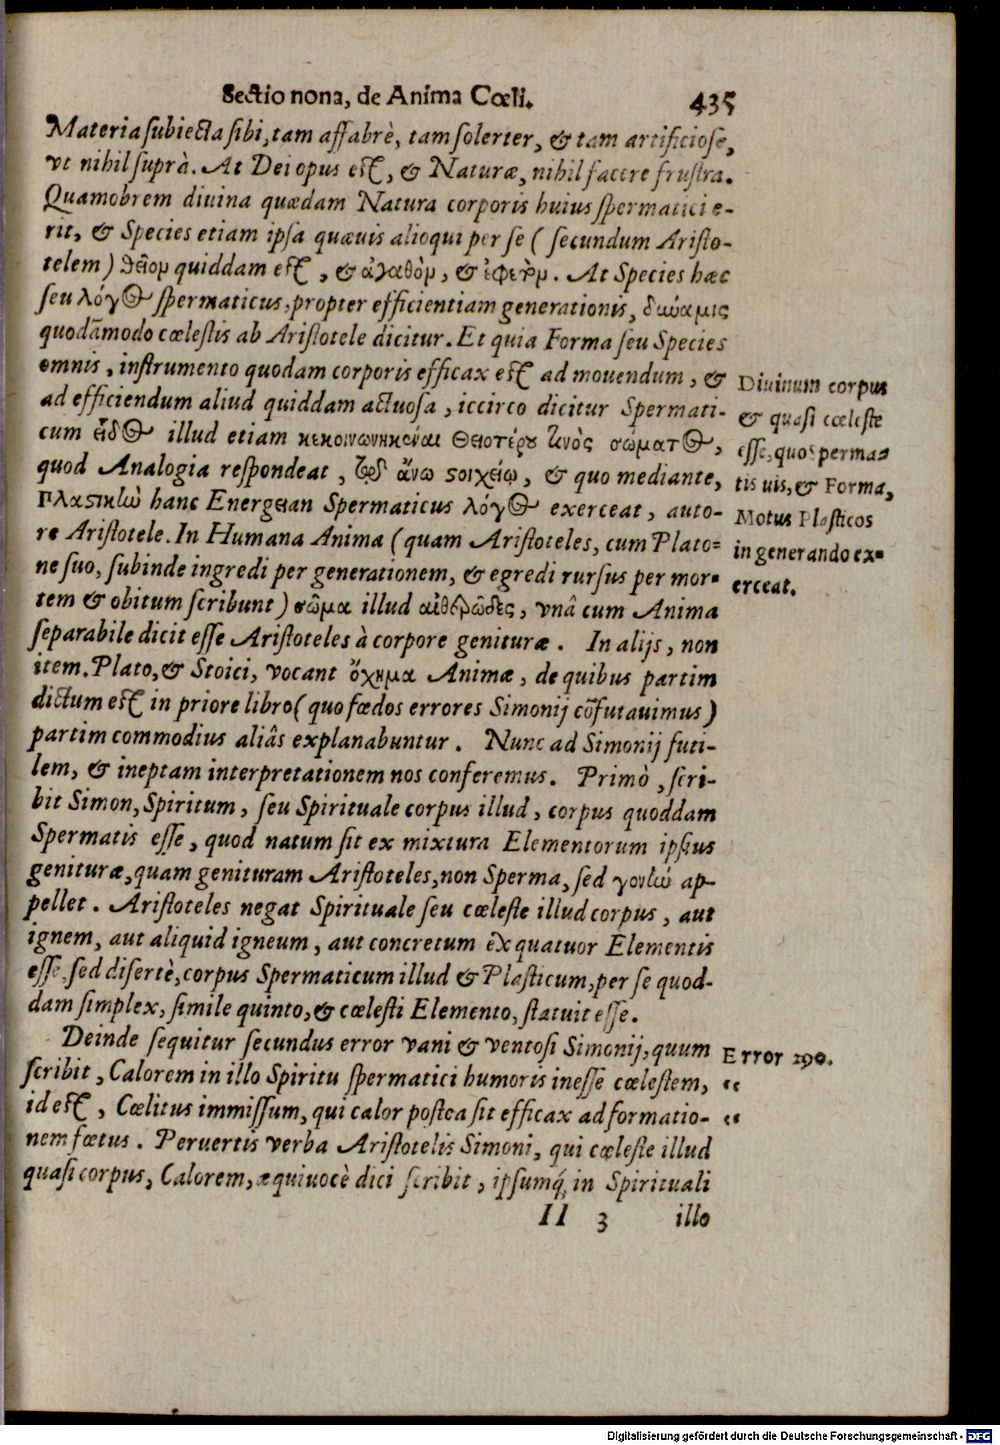 Sectio nona, de Anima Cœli. 435
Materia subiecta sibi, tam affabrè, tam solerter, & tam artificiose,
vt nihil suprà. At Dei opus est, & Naturæ, nihil facere frustra.
Quamobrem diuina quædam Natura corporis huius spermatici e-
rit, & Species etiam ipsa quæuis alioqui per se ( secundum Aristo-
telem ) θεῖομ quiddam est, & ἀγαθὸμ, & ἐφετὸμ. At Species hæc
seu λόγος spermaticus, propter efficientiam generationis, δυνάμις
quodāmodo cœlestis ab Aristotele dicitur. Et quia Forma seu Species
omnis, instrumento quodam corporis efficax est ad mouendum, &
ad efficiendum aliud quiddam actuosa, iccirco dicitur Spermati-
cum εἶδος illud etiam κεκοινωνηκέναι θειοτέρου τινὸς σώματος,
quod Analogia respondeat, τῷ ἄνω ϛοιχείῳ, & quo mediante,
πλαϛικὴν hanc Energeian Spermaticus λόγος exerceat, auto-
re Aristotele. In Humana Anima ( quam Aristoteles, cum Plato-
ne suo, subinde ingredi per generationem, & egredi rursus per mor-
tem & obitum scribunt ) σῶμα illud αἰθερῶδες, vnâ cum Anima
separabile dicit esse Aristoteles à corpore genituræ. In alijs, non
item. Plato, & Stoici, vocant ὄχημα Animæ, de quibus partim
dictum est in priore libro ( quo fœdos errores Simonij cōfutauimus )
partim commodius aliâs explanabuntur. Nunc ad Simonij futi-
lem, & ineptam interpretationem nos conferemus. Primò, scri-
bit Simon, Spiritum, seu Spirituale corpus illud, corpus quoddam
Spermatis esse, quod natum sit ex mixtura Elementorum ipsius
genituræ, quam genituram Aristoteles, non Sperma, sed γονὴν ap-
pellet. Aristoteles negat Spirituale seu cœleste illud corpus, aut
ignem, aut aliquid igneum, aut concretum ex quatuor Elementis
esse, sed disertè, corpus Spermaticum illud & Plasticum, per se quod-
dam simplex, simile quinto, & cœlesti Elemento, statuit esse.
Deinde sequitur secundus error vani & ventosi Simonij, quum
scribit, Calorem in illo Spiritu spermatici humoris inesse cœlestem,
id est, Cœlitus immissum, qui calor postea sit efficax ad formatio-
nem fœtus. Peruertis verba Aristotelis Simoni, qui cœleste illud
quasi corpus, Calorem, æquiuocè dici scribit, ipsumq́; in Spirituali
Ll 3 illo
Diuinum corpus
& quasi cœleste
esse, quo sperma-
tis uis, & Forma,
Motus Plasticos
in generando ex-
erceat.
Error 190.
“
“
Digitalisierung gefördert durch die Deutsche Forschungsgemeinschaft - DFG